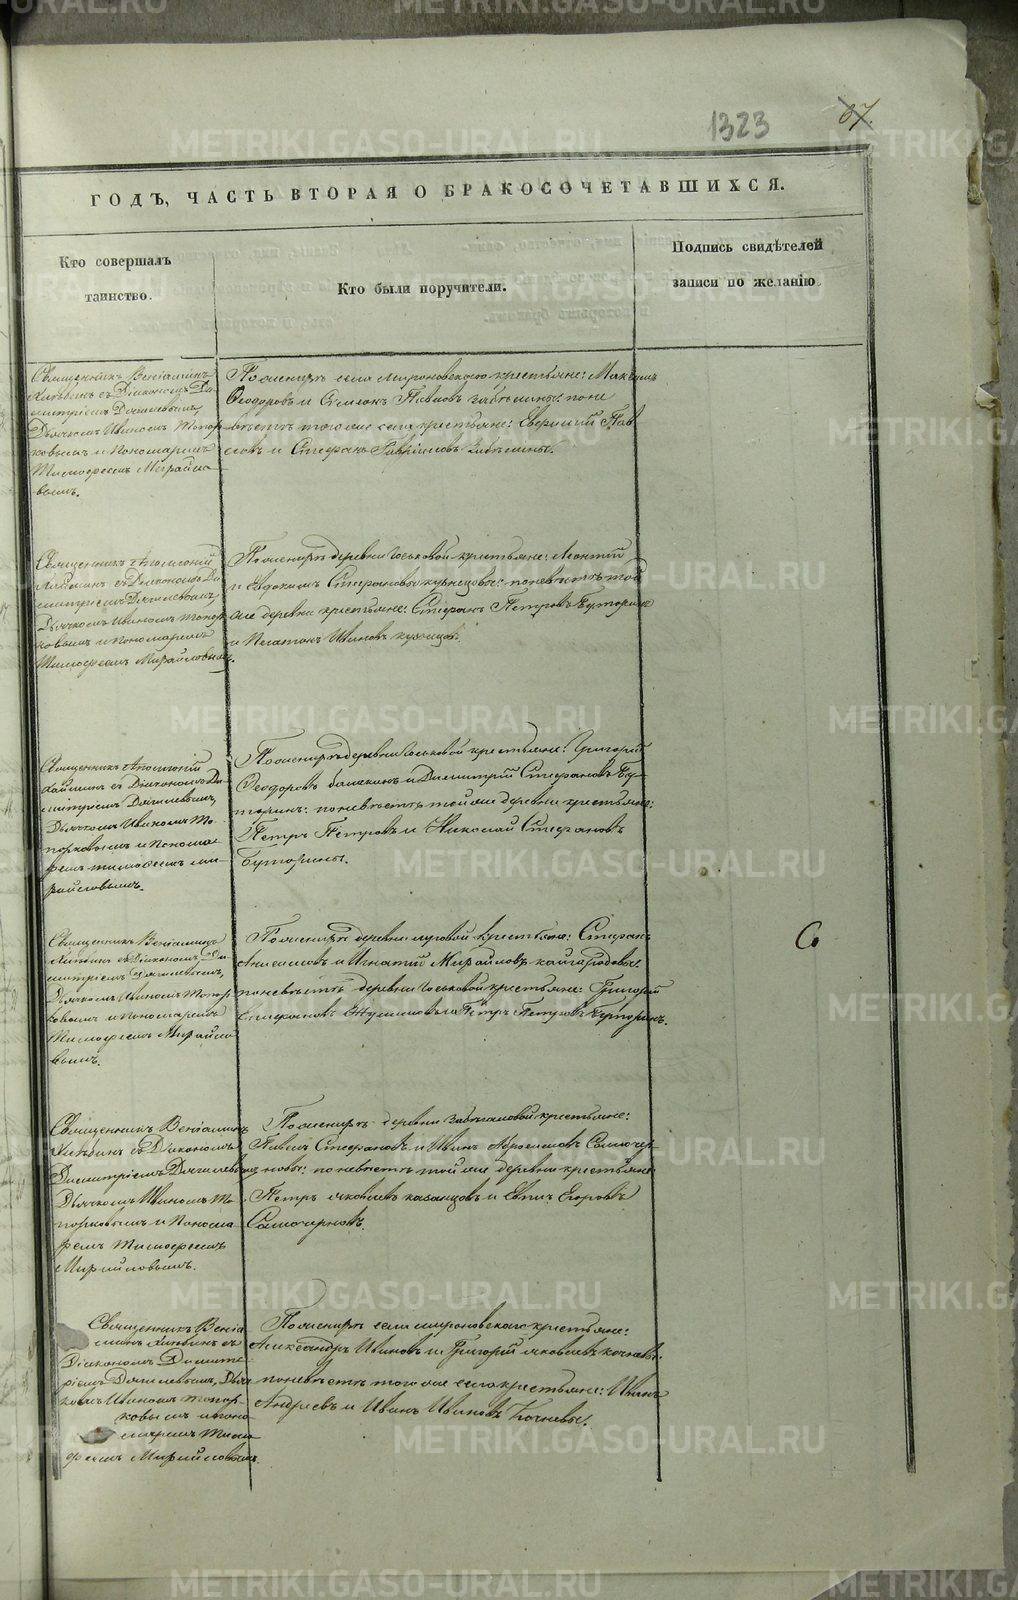 1323
67.
ГОДЪ, ЧАСТЬ ВТОРАЯ О БРАКОСОЧЕТАВШИХСЯ.
Кто совершалъ
таинство.
Кто были поручители.
Подпись свидѣтелей
записи по желанію.
Священникъ Веніаминъ
съ Діакономъ Ди
митріемъ Дягилевымъ,
Дьячкомъ Иваномъ Топор
ковымъ и Пономаремъ
Тимофеемъ Михайло
вымъ.
По женихѣ села Мироновскаго крестьяне: Максимъ
Феодоровъ и Симеонъ Павловъ Забѣлины: по не
вѣстѣ того же села крестьяне: Евфимій Пав
ловъ и Стефанъ Забѣлины.
Священникъ
съ Діакономъ Ди
митріемъ Дягилевымъ,
Дьячкомъ Иваномъ Топор
ковымъ и Пономаремъ
Тимофеемъ Михайловымъ.
По женихѣ деревни крестьяне: Леонтій
и Евдокимъ Стефановы Кузнецовы: по невѣстѣ той
же деревни крестьяне: Стефанъ Петровъ Буторинъ
и Платонъ Ивановъ
Священникъ
съ Діакономъ Ди
митріемъ Дягилевымъ,
Дьячкомъ Иваномъ То
порковымъ и Понома
ремъ Тимофеемъ Ми
хайловымъ.
По женихѣ деревни крестьяне: Григорій
Феодоровъ и Димитрій Стефановъ Бу
торинъ: по невѣстѣ той же деревни крестьяне:
Петръ Петровъ и Николай Стефановъ
Буторины.
Священникъ Веніаминъ
съ Діакономъ Ди
митріемъ Дягилевымъ,
Дьячкомъ Иваномъ Топор
ковымъ и Пономаремъ
Тимофеемъ Михайло
вымъ.
По женихѣ деревни Луговой крестьяне: Стефанъ
и Игнатій Михайловъ Кайгородовы:
по невѣстѣ деревни крестьяне: Григорій
Стефановъ и Петръ Петровъ Буторинъ.
Священникъ Веніаминъ
съ Діакономъ
Димитріемъ Дягилевымъ,
Дьячкомъ Иваномъ То
порковымъ и Понома
ремъ Тимофеемъ
Михайловымъ.
По женихѣ деревни крестьяне:
Павелъ Стефановъ и Иванъ Самочер
новы: по невѣстѣ той же деревни крестьяне
Петръ Яковлевъ Казанцовъ и Егоровъ
Самочерновъ.
Священникъ Веніа
минъ съ
Діакономъ Димит
ріемъ Дягилевымъ, Дьяч
комъ Иваномъ Топор
ковымъ и Поно
маремъ Тимо
феемъ Михайловымъ.
По женихѣ села Мироновскаго крестьяне:
Александръ Ивановъ и Григорій Яковлевъ Кочневы:
по невѣстѣ того же села крестьяне: Иванъ
Андреевъ и Иванъ Ивановъ Кочневы.
METRIKI.GASO-URAL.RU